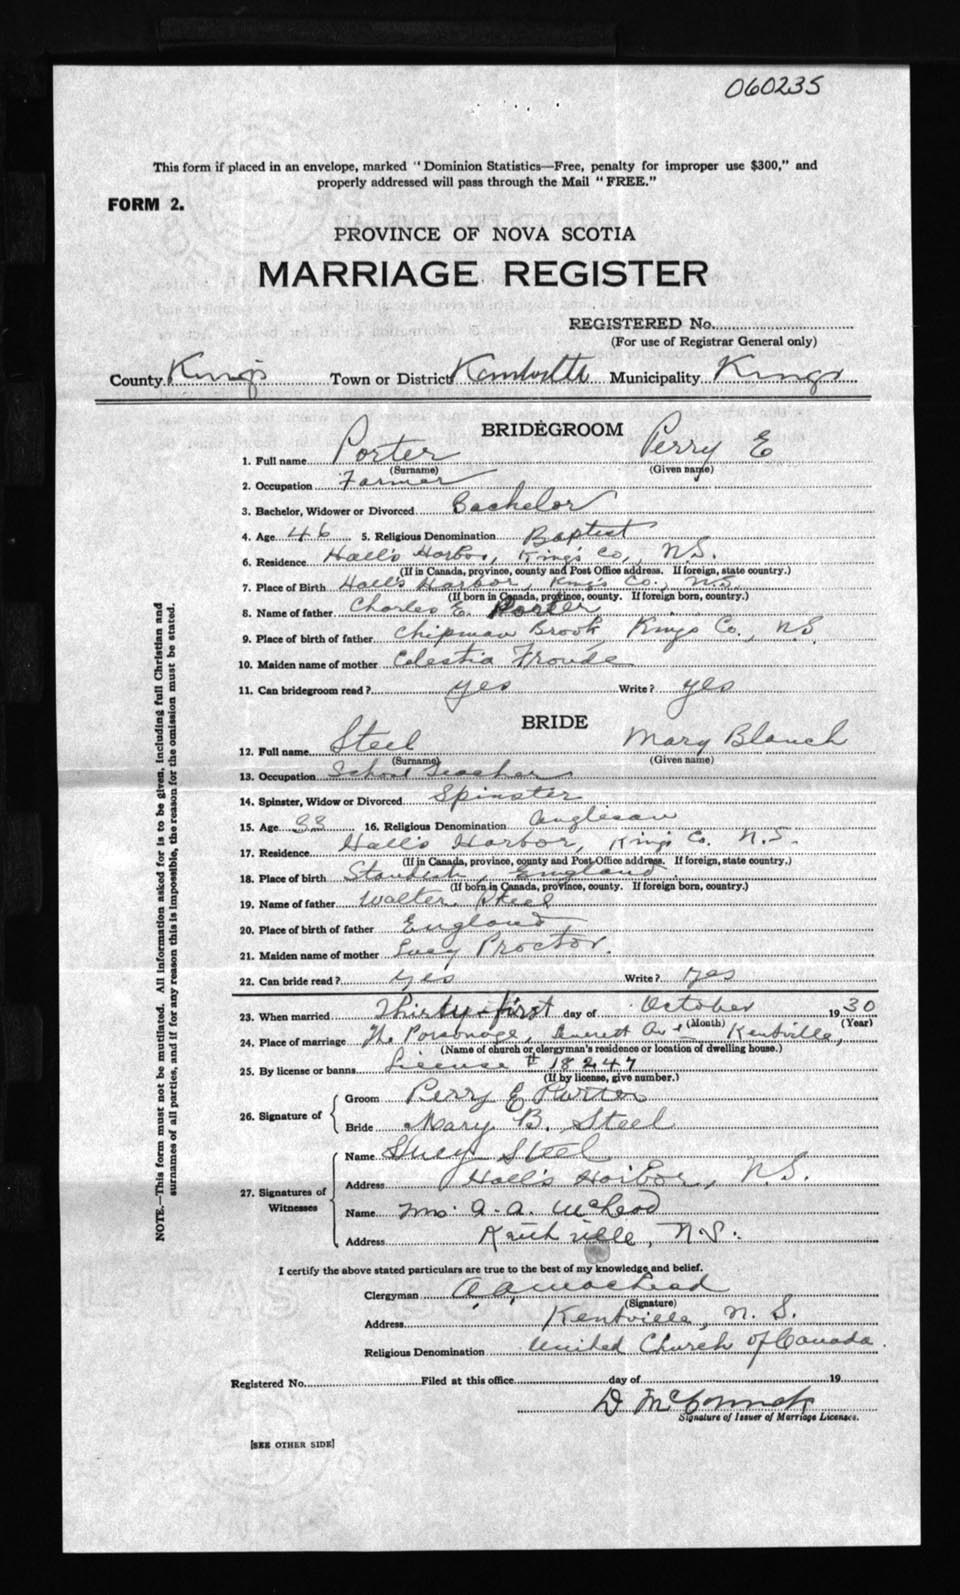 060235
This form if placed in an envelope, marked "Dominion Statistics—Free, penalty for improper use $300," and
properly addressed will pass through the Mail "FREE."
FORM 2.
PROVINCE OF NOVA SCOTIA
MARRIAGE REGISTER
REGISTERED No.
(For use of Registrar General only)
County Kings Town or District Kentville Municipality Kings
BRIDEGROOM
1. Full name Porter Perry E
(Surname) (Given name)
2. Occupation Farmer
3. Bachelor, Widower or Divorced Bachelor
4. Age 46 5. Religious Denomination Baptist
6. Residence Hall's Harbor, King's Co., N.S.
(If in Canada, province, county and Post Office address. If foreign, state country.)
7. Place of Birth Hall's Harbor, King's Co., N.S.
(If born in Canada, province, county. If foreign born, country.)
8. Name of father Charles E. Porter
9. Place of birth of father Chipman Brook, Kings Co., N.S.
10. Maiden name of mother Celestia Froude
11. Can bridegroom read? yes Write? yes
BRIDE
12. Full name Steel Mary Blanch
(Surname) (Given name)
13. Occupation School Teacher
14. Spinster, Widow or Divorced Spinster
15. Age 33 16. Religious Denomination Anglican
17. Residence Hall's Harbor, King's Co. N.S.
(If in Canada, province, county and Post Office address. If foreign, state country.)
18. Place of birth Standish, England
(If born in Canada, province, county. If foreign born, country.)
19. Name of father Walter Steel
20. Place of birth of father England
21. Maiden name of mother Lucy Proctor.
22. Can bride read? yes Write? yes
23. When married Thirty-first day of October 1930
(Month) (Year)
24. Place of marriage The Parsonage, Ave Kentville,
(Name of church or clergyman's residence or location of dwelling house.)
25. By license or banns License # 18247
(If by license, give number.)
26. Signature of
Groom Perry E Porter
Bride Mary B. Steel
27. Signatures of Witnesses
Name Lucy Steel
Address Hall's Harbor, N.S.
Name Mrs. A. A. McLeod
Address Kentville, N.S.
I certify the above stated particulars are true to the best of my knowledge and belief.
Clergyman A. A. MacLeod
(Signature)
Address Kentville, N. S.
Religious Denomination United Church of Canada.
Registered No. Filed at this office day of 19
D McCormick
Signature of Issuer of Marriage Licenses.
[SEE OTHER SIDE]
NOTE.—This form must not be mutilated. All information asked for is to be given, including full Christian and
surnames of all parties, and if for any reason this is impossible, the reason for the omission must be stated.